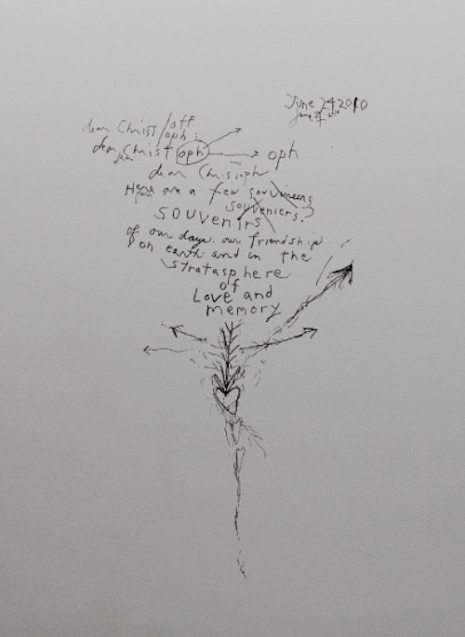 June 24 2010
June 24 2010
dear Christ/off
oph:
dear Christ oph → oph
dear Chrisiph
Here are a few souvineers
souveniers?
souvenirs
of our days. our friendship
on earth and in the
stratasphere
of
Love and
memory